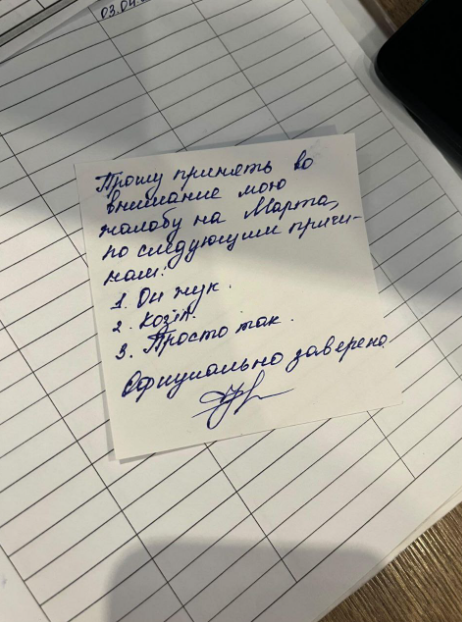 03.04.
Прошу принять во
внимание мою
жалобу на Марта,
по следующим причи-
нам:
1. Он жук.
2. Козёл.
3. Просто так.
Официально заверено.